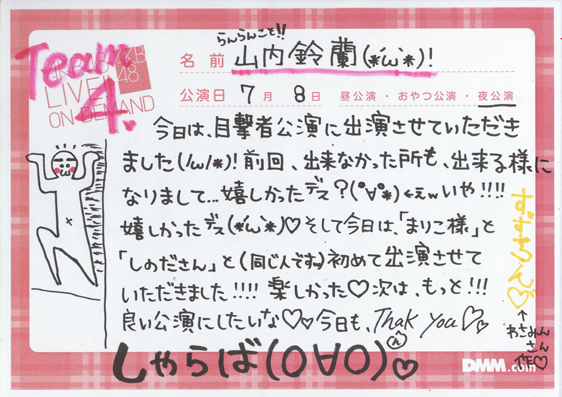 らんらんこと!!
名前 山内鈴蘭(*´ω`*)!
Team
4.
AKB48
LIVE!!
ON DEMAND
公演日 7月 8日 昼公演・おやつ公演・夜公演
今日は、目撃者公演に出演させていただき
ました(/ω/*)!前回、出来なかった所も、出来る様に
なりまして...嬉しかったデス?(°∀°*)←えwいや!!!!
嬉しかったデス(*´ω`*)♡そして今日は、「まりこ様」と
「しのださん」と(同じ人です)初めて出演させて
いただきました!!!!楽しかった♡次は、もっと!!!
良い公演にしたいな♡♡今日も、Thank You♡♡
しゃらば(O∀O)♡
DMM.com